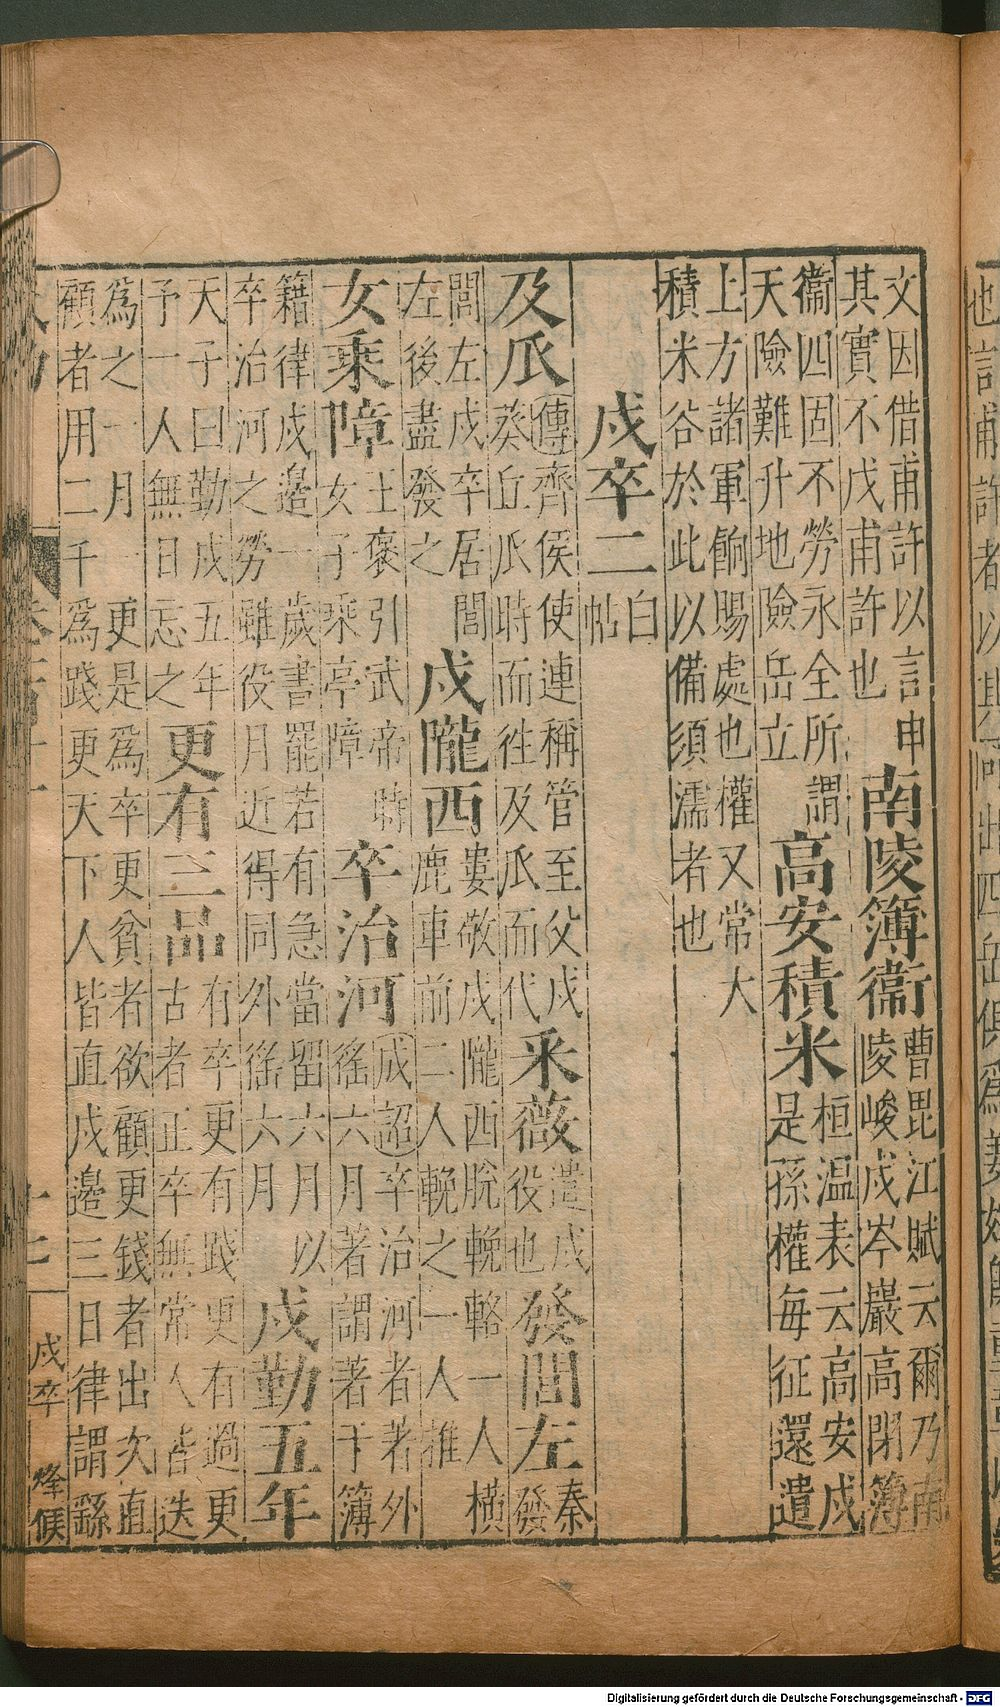 文因借甫許以言申
其實不戊甫許也
南陵簿衞
曹毘江賦云爾乃南
陵峻戍岑巖高閉簿
衞四固不勞永全所謂
天險難升地險岳立
高安積米
桓温表云高安戍
是孫權每征還遺
上方諸軍餉賜處也權又常大
積米谷於此以備須濡者也
戍卒二
白
帖
及瓜
傳齊侯使連稱管至父戍
葵丘瓜時而徃及瓜而代
采薇
遣戍
役也
發閭左
秦
發
閭左戍卒居閭
左後盡發之
戍隴西
婁敬戍隴西脫輓輅一人橫
鹿車前二人輓之一人推
女乘障
王褒引武帝時
女子乘亭障
卒治河
成詔卒治河者著外
徭六月著謂著于簿
籍律戍邊一歲書罷若有急當留六月以
卒治河之勞雖役月近得同外徭六月
戍勤五年
天子曰勤戍五年
予一人無日忘之
更有三品
有卒更有踐更有過更
古者正卒無常人皆迭
爲之一月一更是爲卒更貧者欲顧更錢者出次直
顧者用二千爲踐更天下人皆直戍邊三日律謂繇
戍卒 烽候
Digitalisierung gefördert durch die Deutsche Forschungsgemeinschaft - DFG